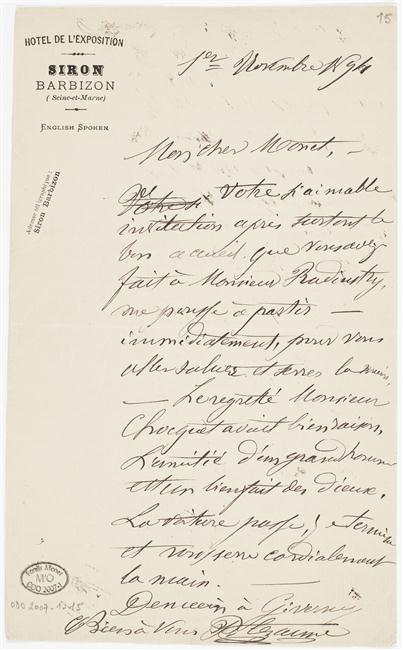 15
HOTEL DE L'EXPOSITION
SIRON
BARBIZON
(Seine-et-Marne)
ENGLISH SPOKEN
Adresse télégraphique :
Siron Barbizon
1er Novembre 1894
Mon cher Monet, –
De votre si aimable
invitation après surtout le
bon accueil que vous avez
fait à Monsieur
me pousse à partir –
immédiatement, pour vous
aller saluer et serrer la main,
– Le regretté Monsieur
Chocquet avait bien raison,
L'amitié d'un grand homme
est un bienfait des dieux,
La voiture passe, je termine
et vous serre cordialement
la main. –
Demain à Giverny
Bien à Vous P. Cezanne
Famille Monet
M'O
ODO 2007-1
ODO 2007-1-15